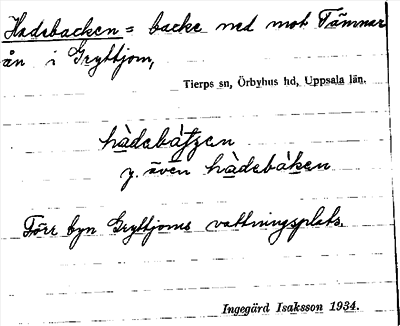 Hadebacken = backe ned mot Tämnar
ån i Gryttjom,
Tierps sn, Örbyhus hd, Uppsala län.
hàdebàtzen
y. även hàdebàken
Förr byn Gryttjoms vattningsplats.
Ingegärd Isaksson 1934.